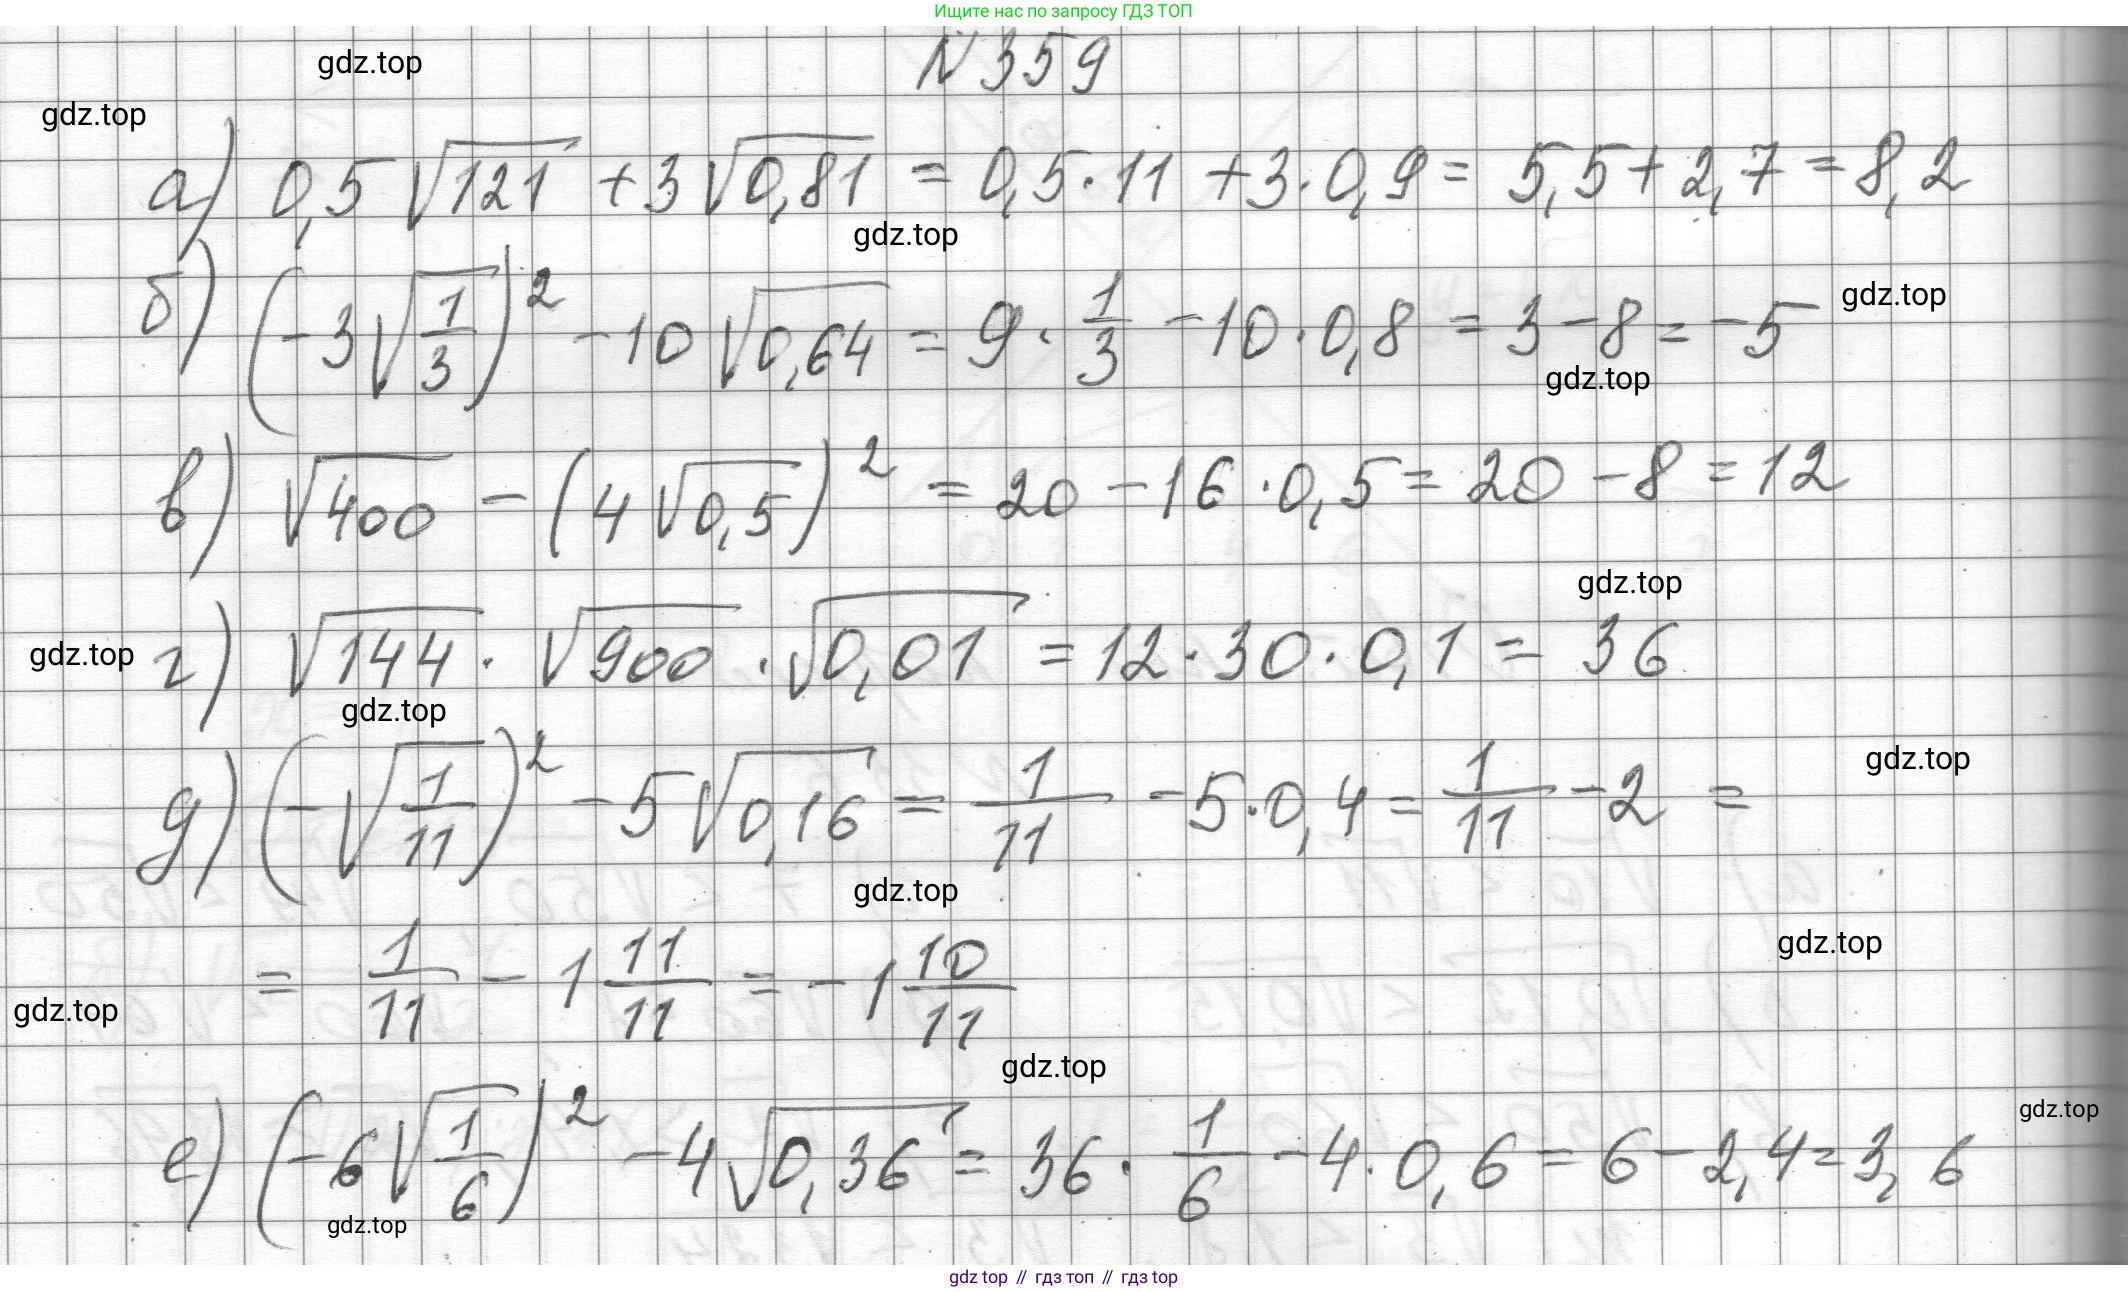 Ищите нас по запросу ГДЗ ТОП
N 359
gdz.top
gdz.top
а) 0,5√121 + 3√0,81 = 0,5·11 + 3·0,9 = 5,5 + 2,7 = 8,2
gdz.top
б) (-3√(1/3))² - 10√0,64 = 9·1/3 - 10·0,8 = 3 - 8 = -5
gdz.top
gdz.top
в) √400 - (4√0,5)² = 20 - 16·0,5 = 20 - 8 = 12
gdz.top
г) √144 · √900 · √0,01 = 12·30·0,1 = 36
gdz.top
gdz.top
д) (-√(1/11))² - 5√0,16 = 1/11 - 5·0,4 = 1/11 - 2 =
gdz.top
gdz.top
= 1/11 - 1 11/11 = -1 10/11
gdz.top
gdz.top
gdz.top
gdz.top
е) (-6√(1/6))² - 4√0,36 = 36·1/6 - 4·0,6 = 6 - 2,4 = 3,6
gdz.top
gdz top // гдз топ // гдз top